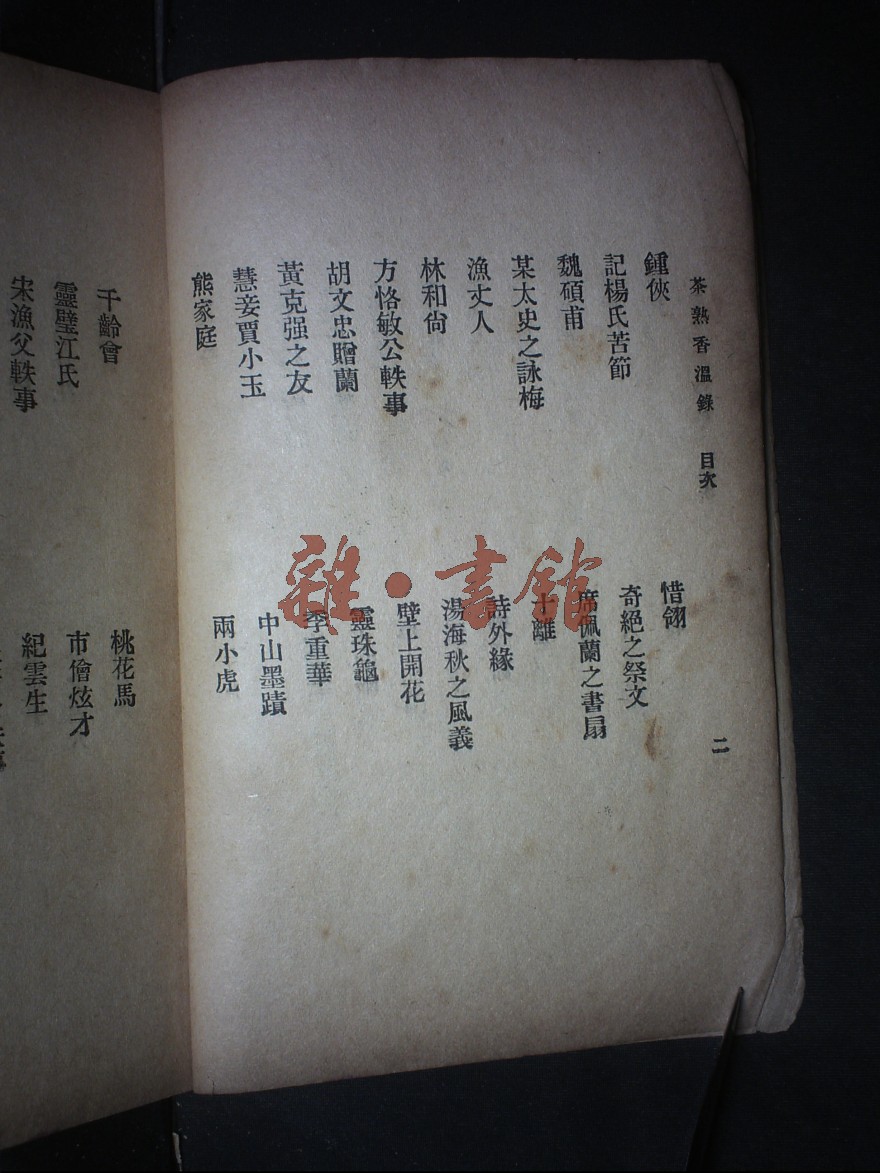 茶熟香溫錄 目次 二
鍾俠
惜翎
記楊氏苦節
奇絕之祭文
魏碩甫
席佩蘭之書扇
某太史之詠梅
十離
漁丈人
詩外緣
林和尙
湯海秋之風義
方恪敏公軼事
壁上開花
胡文忠贈蘭
靈珠龜
黃克强之友
季重華
慧妾賈小玉
中山墨蹟
熊家庭
兩小虎
千齡會
桃花馬
靈璧江氏
市儈炫才
宋漁父軼事
紀雲生
雜·書館